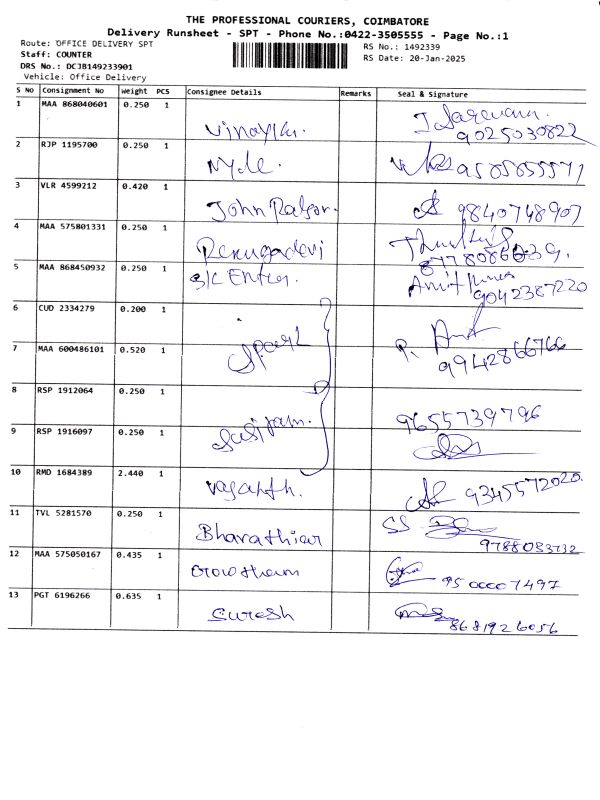 THE PROFESSIONAL COURIERS, COIMBATORE
Delivery Runsheet - SPT - Phone No.:0422-3505555 - Page No.:1
Route: OFFICE DELIVERY SPT
RS No.: 1492339
Staff: COUNTER
RS Date: 20-Jan-2025
DRS No.: DCJB149233901
Vehicle: Office Delivery
S No Consignment No Weight PCS Consignee Details Remarks Seal & Signature
1 MAA 868040601 0.250 1 Vinayka. J Saravana. 9025030822
2 RJP 1195700 0.250 1 Nyle. 9585855571
3 VLR 4599212 0.420 1 John 9840748907
4 MAA 575801331 0.250 1 Renugadevi 8778086039.
5 MAA 868450932 0.250 1 Amit Kumar 9042387220
6 CUD 2334279 0.200 1
7 MAA 600486101 0.520 1 9942866766
8 RSP 1912064 0.250 1 9655739796
9 RSP 1916097 0.250 1
10 RMD 1684389 2.440 1 Vasanth. 9345572020.
11 TVL 5281570 0.250 1 Bharathiar SS 9788083732
12 MAA 575050167 0.435 1 9500007497
13 PGT 6196266 0.635 1 Suresh 8681926056